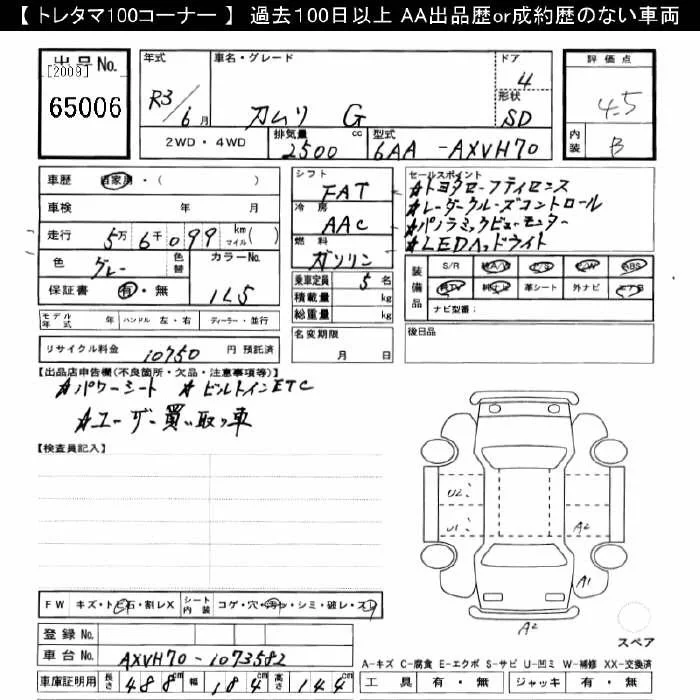 【 トレタマ100コーナー 】 過去100日以上 AA出品歴or成約歴のない車両
出品No.
[2009]
65006
年式
R3/6月
車名・グレード
カムリ G
ドア
4
形状
SD
評価点
4.5
内装
B
2WD・4WD
排気量 cc
2500
型式
6AA -AXVH70
車歴 自家用・( )
車検 年 月
走行 5万6千099 km マイル( )
色 グレー 色替 カラーNo.
1L5
保証書 有・無
シフト
FAT
冷房
AAC
燃料
ガソリン
乗車定員 5 名
積載量 kg
総重量 kg
セールスポイント
#トヨタセーフティセンス
#レーダークルーズコントロール
#パノラミックビューモニター
#LEDヘッドライト
装備品 S/R A/W P/S P/W ABS
TV ナビ 革シート 外ナビ エアB
ナビ型番:
モデル年式 年 ハンドル 左・右 ディーラー・並行
名変期限
月 日
後日品
リサイクル料金 10750 円 預託済
【出品店申告欄(不良箇所・欠品・注意事項等)】
#パワーシート #ビルトインETC
#ユーザー買い取り車
【検査員記入】
U2
U1
A2
A1
A2
FW キズ・トビ石・割レX シート内装 コゲ・穴・汚レ・シミ・破レ・スレ
スペア
登録No.
車台No. AXVH70-1073582
A-キズ C-腐食 E-エクボ S-サビ U-凹ミ W-補修 XX-交換済
車庫証明用 長さ 488cm 幅 184cm 高さ 144cm
工具 有・無 ジャッキ 有・無